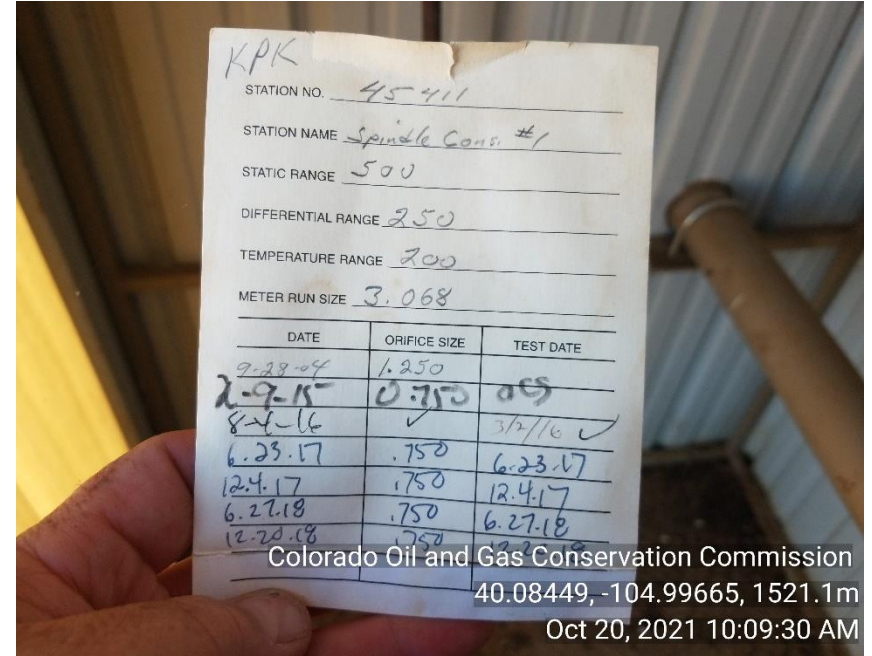 KPK
STATION NO. 45411
STATION NAME Spindle Cons. #1
STATIC RANGE 500
DIFFERENTIAL RANGE 250
TEMPERATURE RANGE 200
METER RUN SIZE 3.068
DATE ORIFICE SIZE TEST DATE
9-28-04 1.250
2-9-15 0.750
8-4-16 ✓ 3/2/16 ✓
6.23.17 .750 6.23.17
12.4.17 .750 12.4.17
6.27.18 .750 6.27.18
12.20.18 .750 12.20.18
Colorado Oil and Gas Conservation Commission
40.08449, -104.99665, 1521.1m
Oct 20, 2021 10:09:30 AM